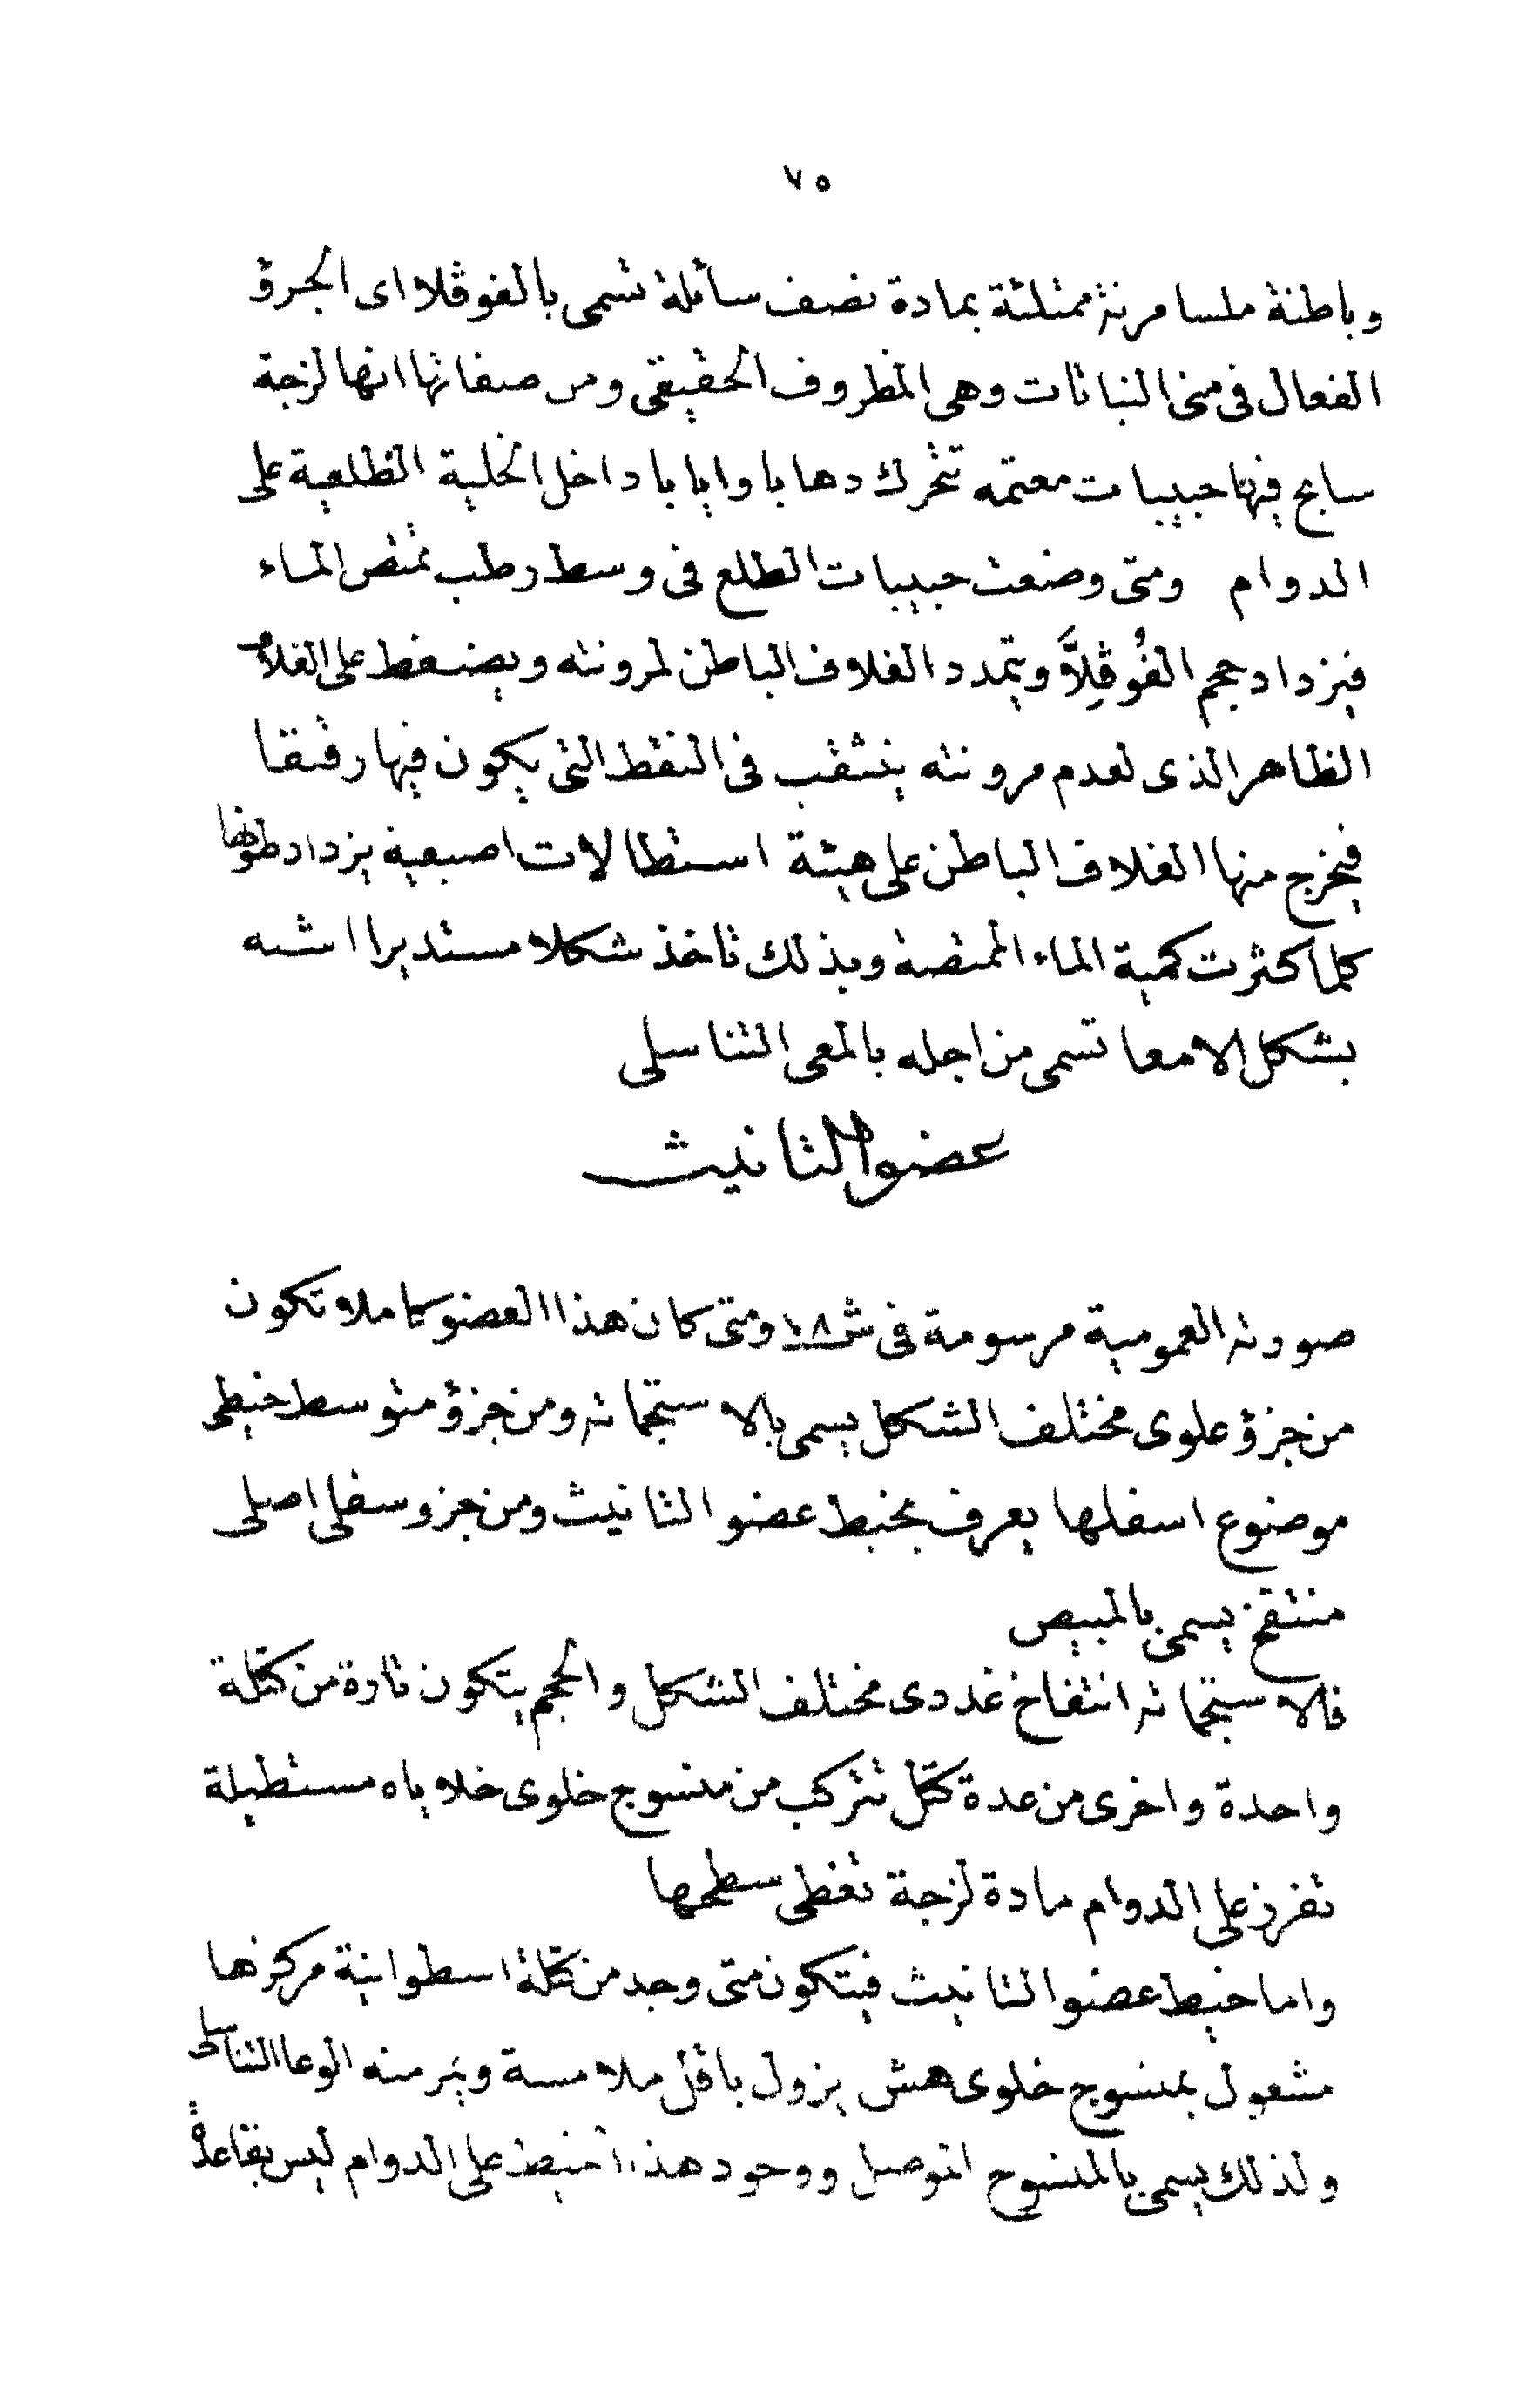 ٧٥
وباطنة ملسا مرنة ممتلئة بمادة نصف سائلة تسمى بالفوڤلا اى الجرؤ
الفعال فى منى النباتات وهى المظروف الحقيقى ومن صفاتها انها لزجة
سابح فيها حبيبات معتمه تتحرك دهابا وايابا داخل الخلية الطلعية على
الدوام ومتى وضعت حبيبات الطلع فى وسط رطب تمتص الماء
فيزداد حجم الفُوڤِلاَّ ويتمدد الغلاف الباطن لمرونته ويضغط على الغلاف
الظاهر الذى لعدم مرونته ينثقب فى النقط التى يكون فيها رقيقا
فيخرج منها الغلاف الباطن على هيئة استطالات اصبعية يزداد طولها
كلما كثرت كمية الماء الممتصة وبذلك تاخذ شكلا مستديرا اشبه
بشكل الامعا تسمى من اجله بالمعى التناسلى
عضو التانيث
صورته العمومية مرسومة فى ش ١٨ ومتى كان هذا العضو كاملا تكون
من جزؤ علوى مختلف الشكل يسمى بالاستجماته ومن جزؤ متوسط خيطى
موضوع اسفلها يعرف بخيط عضو التانيث ومن جزو سفلى اصلى
منتفخ يسمى بالمبيص
فالاستجماته انتفاخ غددى مختلف الشكل والحجم يتكون تارة من كتلة
واحدة واخرى من عدة كتل تتركب من منسوج خلوى خلاياه مستطيلة
تفرز على الدوام مادة لزجة تغطى سطحها
واما خيط عضو التانيث فيتكون متى وجد من كتلة اسطوانية مركزها
مشغول بمنسوج خلوى هش يزول باقل ملامسة ويمر منه الوعا التناسلى
ولذلك يسمى بالمنسوج الموصل ووجود هذا الخيط على الدوام ليس بقاعدة